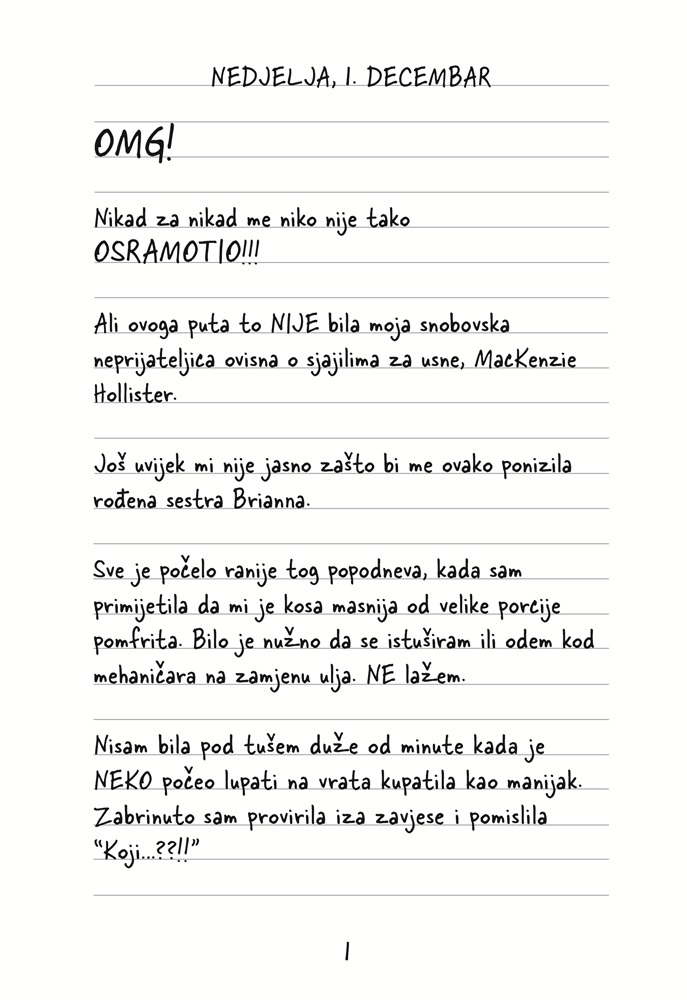 NEDJELJA, 1. DECEMBAR
OMG!
Nikad za nikad me niko nije tako
OSRAMOTIO!!!
Ali ovoga puta to NIJE bila moja snobovska
neprijateljica ovisna o sjajilima za usne, MacKenzie
Hollister.
Još uvijek mi nije jasno zašto bi me ovako ponizila
rođena sestra Brianna.
Sve je počelo ranije tog popodneva, kada sam
primijetila da mi je kosa masnija od velike porcije
pomfrita. Bilo je nužno da se istuširam ili odem kod
mehaničara na zamjenu ulja. NE lažem.
Nisam bila pod tušem duže od minute kada je
NEKO počeo lupati na vrata kupatila kao manijak.
Zabrinuto sam provirila iza zavjese i pomislila
“Koji...??!!”
1